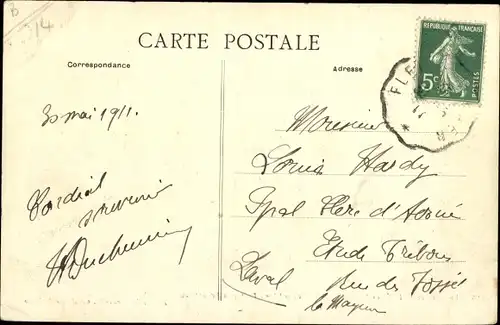 14
CARTE POSTALE
Correspondance
Adresse
RÉPUBLIQUE FRANÇAISE
5c
POSTES
FLE
30 mai 1911.
Cordial
souvenir
Monsieur
Louis Hardy
Ppal Clerc d'Avoué
Etude
Rue des Fossés
Laval
la Mayenne